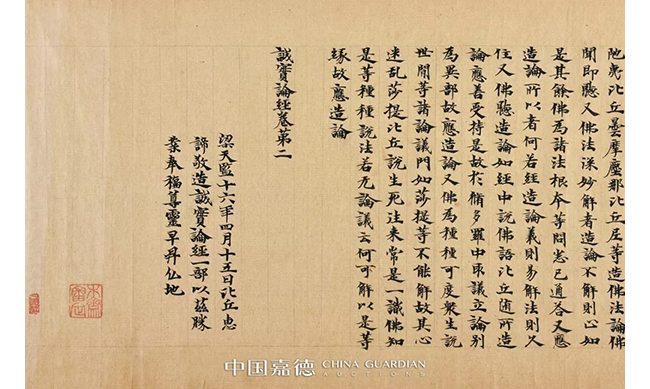 陁兜比丘曇摩塵那比丘尼等造佛法論佛
聞即聽又佛法深妙解者造論不解則止如
是其餘佛為諸法根本等問悉已通荅又應
造論所以者何若經造論義則易解法則久
住又佛聽造論如經中說佛語比丘随所造
論應善受持是故於脩多羅中取議立論別
為異部故應造論又佛為種種可度衆生說
世間等諸論議門如莎提等不能解故其心
迷乱莎提比丘說生死往来常是一識佛如
是等種種說法若无論議云何可解以是等
緣故應造論
誠實論經卷第二
梁天監十六年四月十五日比丘惠
諦敬造誠實論經一部以茲勝
業奉福尊靈早昇仏地
中国嘉德 CHINA GUARDIAN
AUCTIONS